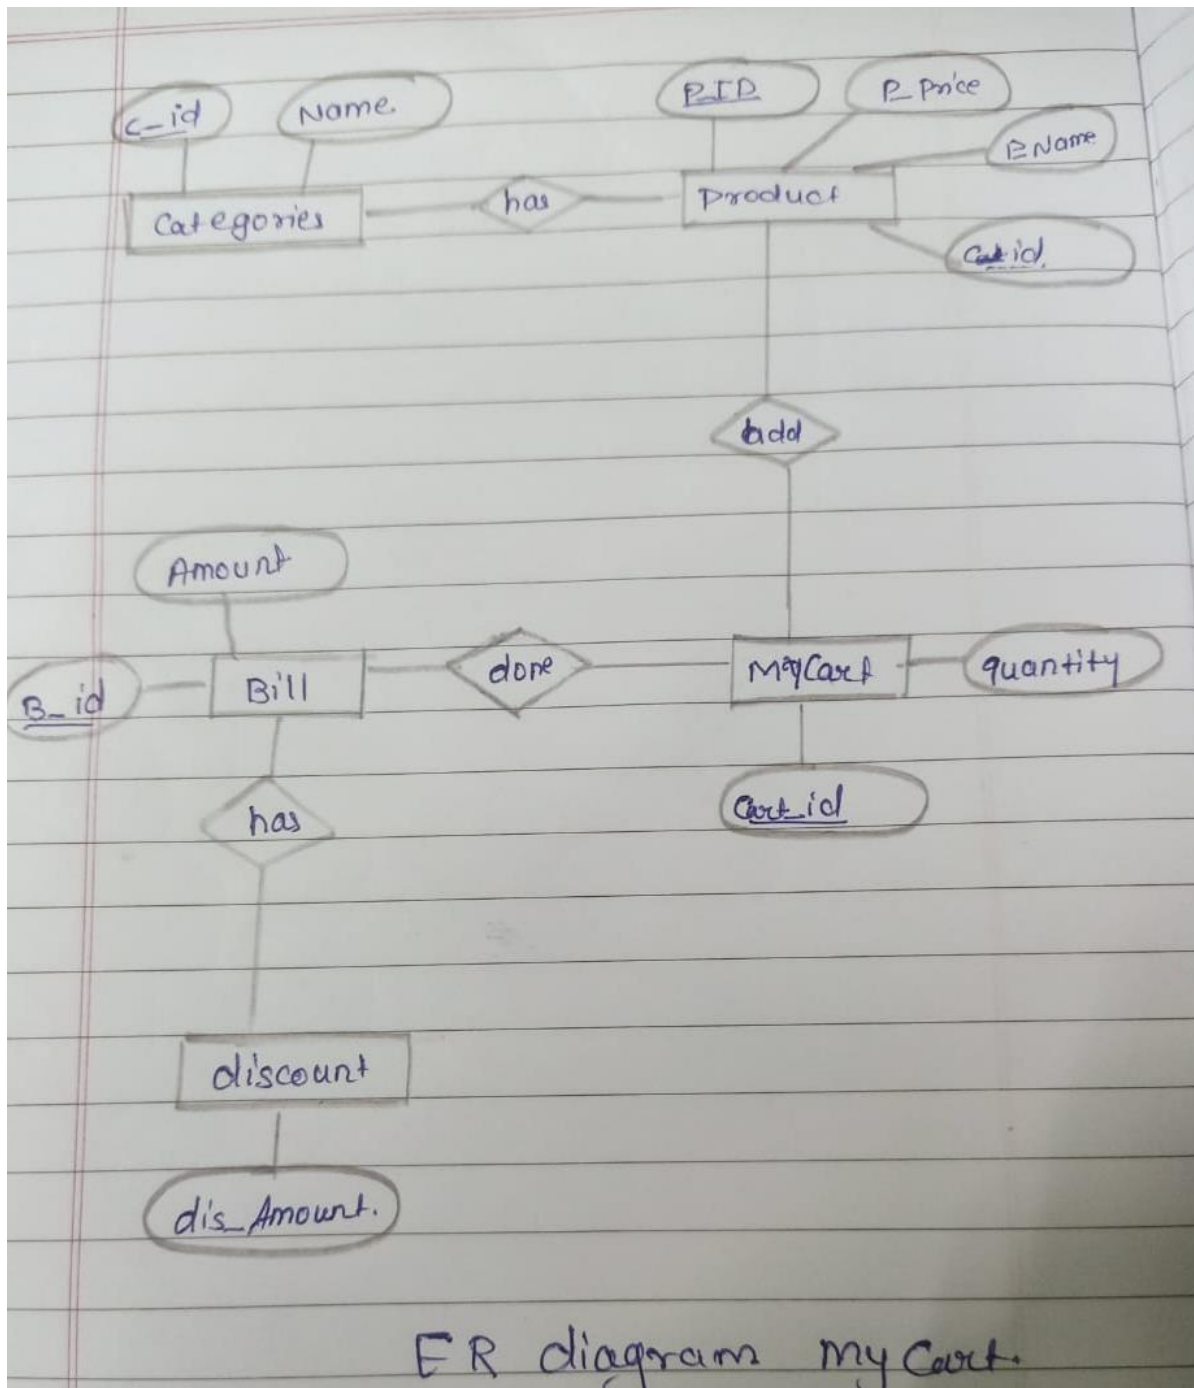 C_id
Name.
P_ID
P_Price
P_Name
Categories
has
Product
Cat id.
add
Amount
B_id
Bill
done
MyCart
quantity
has
Cart_id
discount
dis_Amount.
ER diagram My Cart.